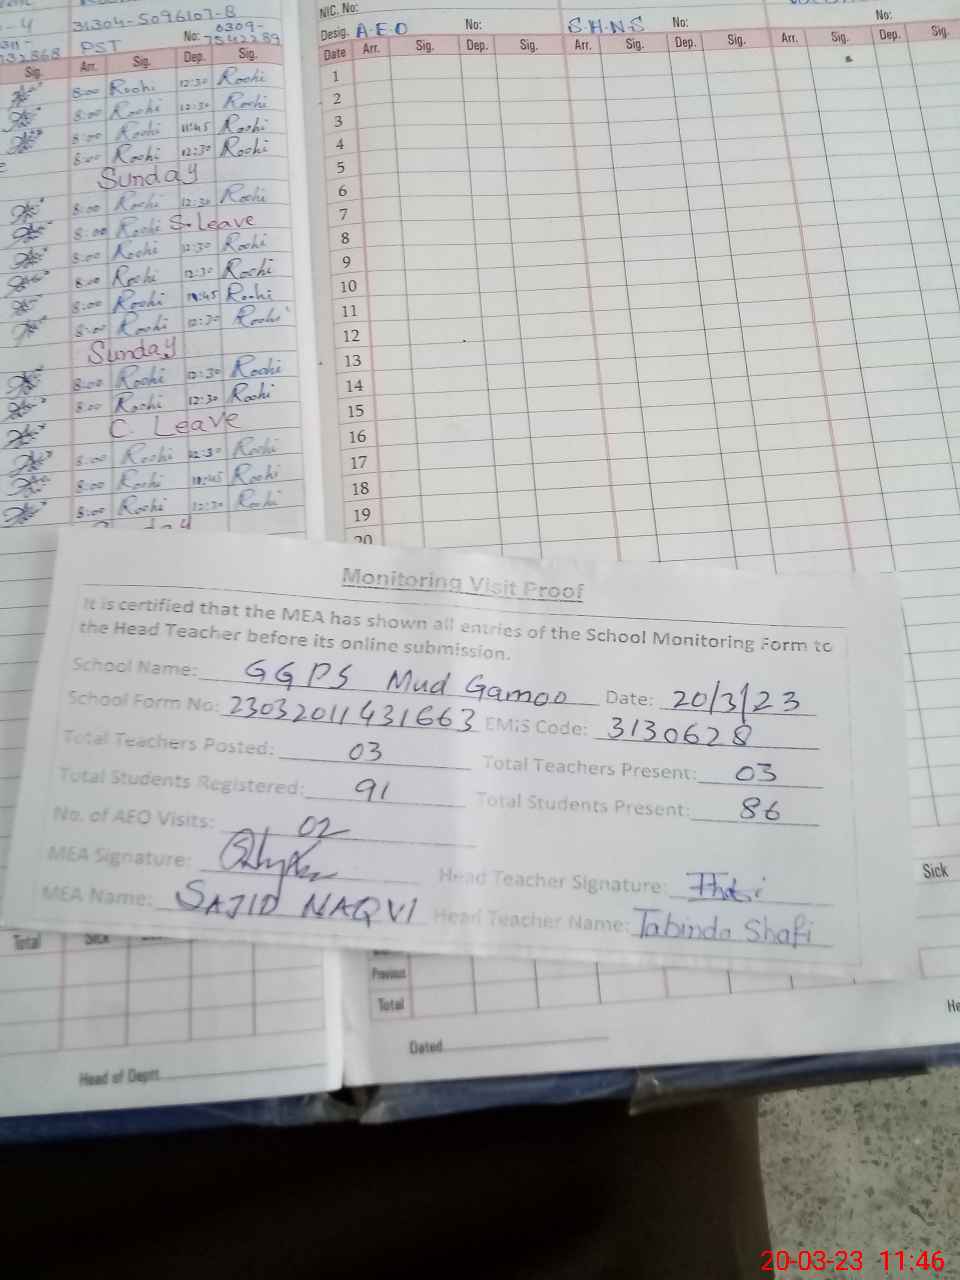 31304-5096107-8
PST No: 0309-
7542289
Sig. Arr. Sig. Dep. Sig.
8:00 Roohi 12:30 Roohi
8:00 Roohi 12:30 Roohi
8:00 Roohi 11:45 Roohi
8:00 Roohi 12:30 Roohi
Sunday
8:00 Roohi 12:30 Roohi
8:00 Roohi S.Leave
8:00 Roohi 12:30 Roohi
8:00 Roohi 12:30 Roohi
8:00 Roohi 11:45 Roohi
8:00 Roohi 12:30 Roohi
Sunday
8:00 Roohi 12:30 Roohi
8:00 Roohi 12:30 Roohi
C. Leave
8:00 Roohi 12:30 Roohi
8:00 Roohi 11:45 Roohi
8:00 Roohi 12:30 Roohi
NIC. No:
Desig. A.E.O No: S.H.N.S No: No:
Date Arr. Sig. Dep. Sig. Arr. Sig. Dep. Sig. Arr. Sig. Dep. Sig.
1
2
3
4
5
6
7
8
9
10
11
12
13
14
15
16
17
18
19
20
Monitoring Visit Proof
It is certified that the MEA has shown all entries of the School Monitoring Form to
the Head Teacher before its online submission.
School Name: GGPS Mud Gamoo Date: 20/3/23
School Form No: 23032011431663 EMIS Code: 3130628
Total Teachers Posted: 03 Total Teachers Present: 03
Total Students Registered: 91 Total Students Present: 86
No. of AEO Visits: 02
MEA Signature: Head Teacher Signature:
MEA Name: SAJID NAQVI Head Teacher Name: Tabinda Shafi
Sick
Total Sick
Previous
Total
Dated
Head of Deptt.
He
20-03-23 11:46